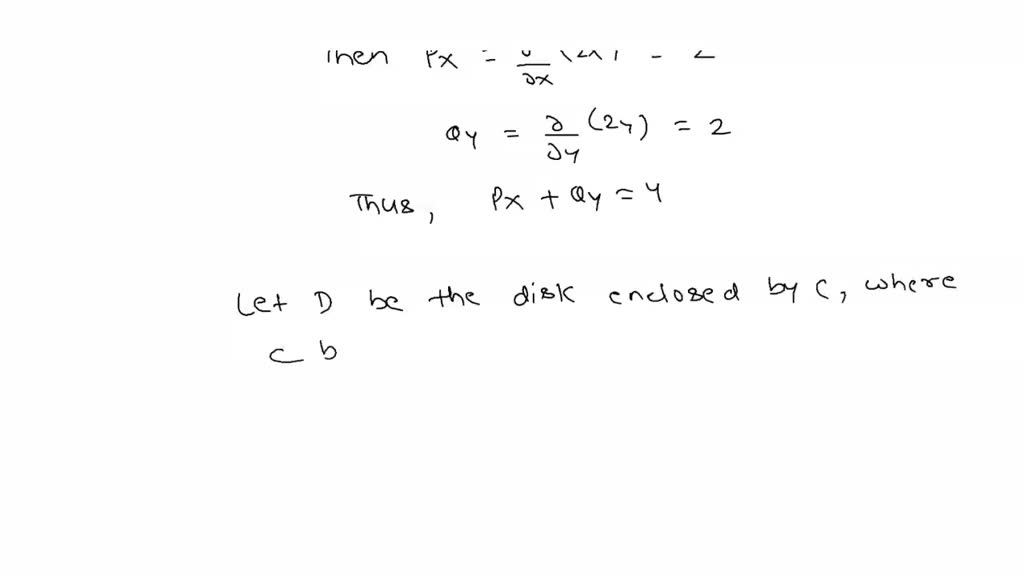 Then Px = ∂/∂x (2x) = 2
Qy = ∂/∂y (2y) = 2
Thus, Px + Qy = 4
Let D be the disk enclosed by C, where
C b